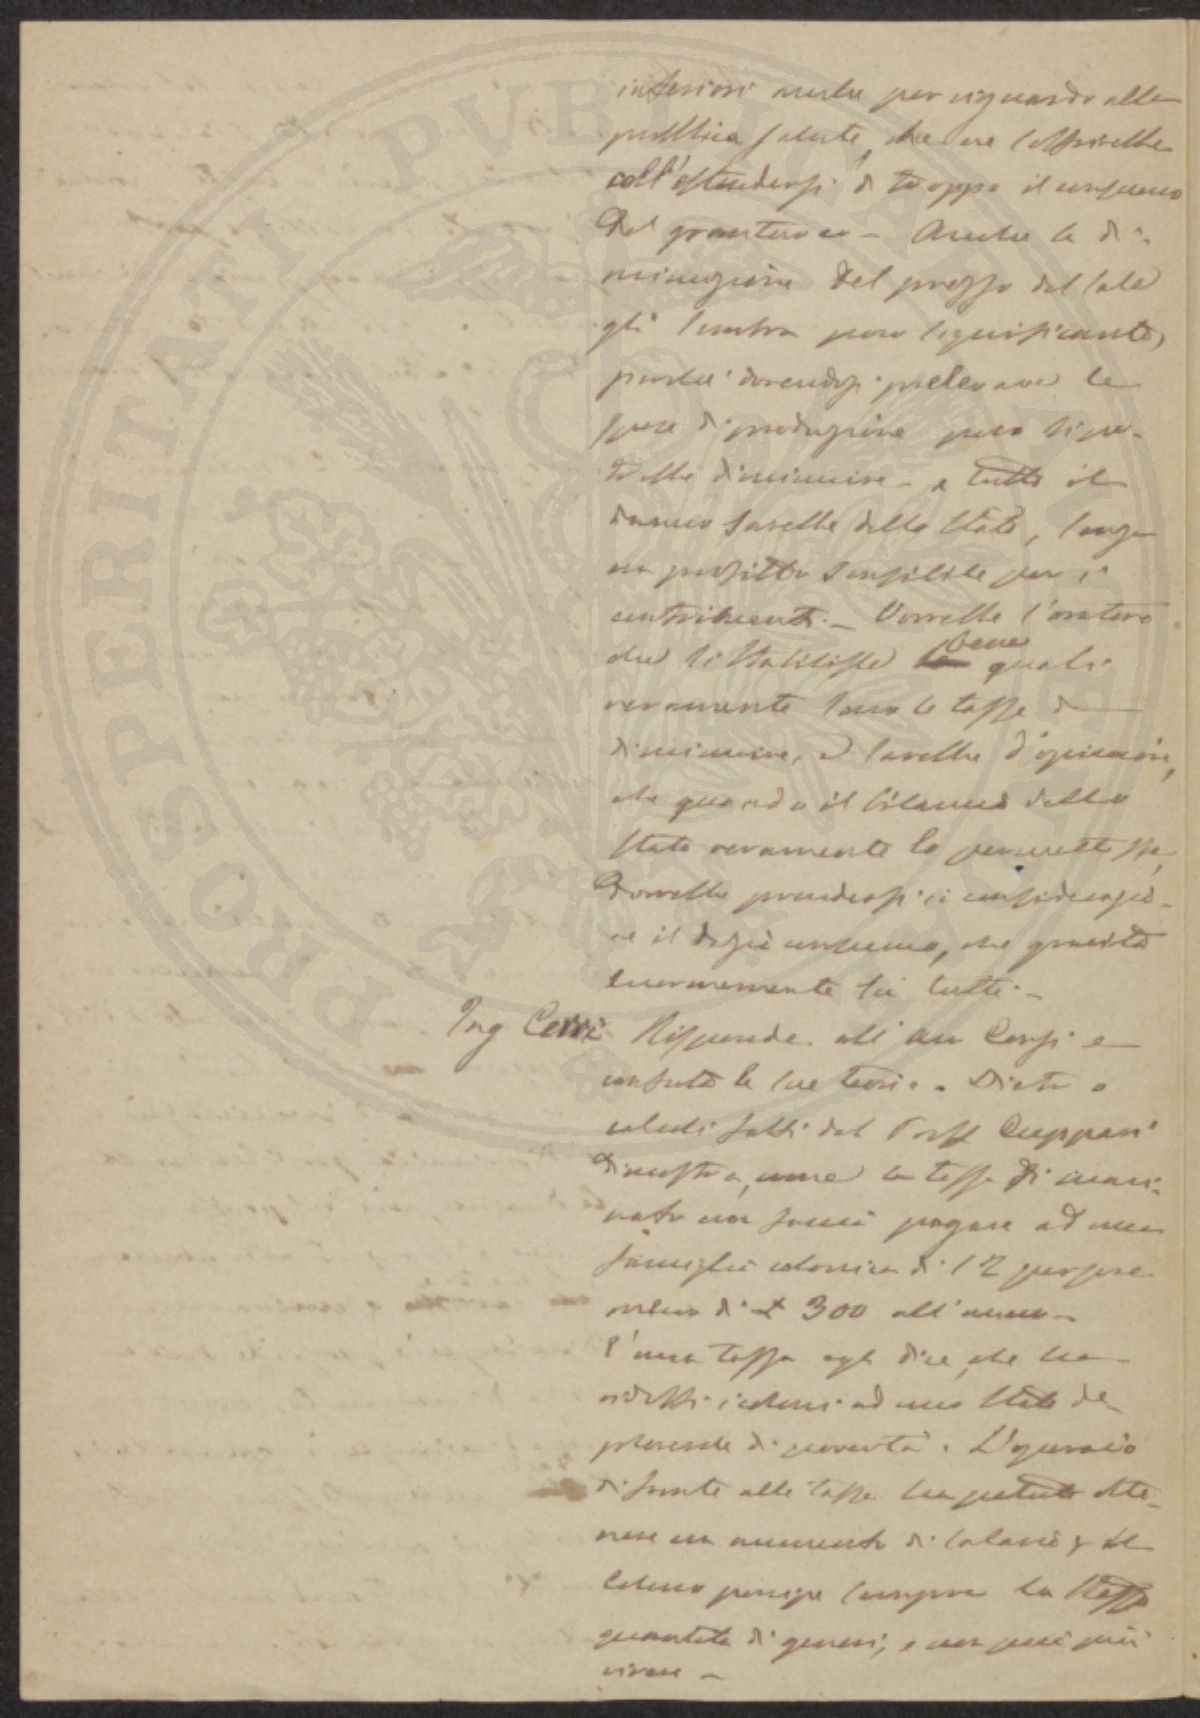 PROSPERITATI PVBLICAE
inferiori anche per riguardo alla
pubblica salute, che ne soffrirebbe
coll'estendersi di troppo il consumo
del granturco - Anche la di-
minuzione del prezzo del sale
gli sembra poco significante,
perchè dovendosi prelevare le
spese di produzione poco si po-
trebbe diminuire - e tutto il
danno sarebbe dello Stato, senza
un profitto sensibile per i
contribuenti - Vorrebbe l'oratore
che si stabilisse bene quali
veramente sono le tasse da
diminuire, e sarebbe d'opinione,
che quando il bilancio dello
Stato veramente lo permettesse,
dovrebbe prendersi in considerazio-
ne il dazio consumo, che gravita
enormemente su tutti -
Ing Cerri Risponde all' Corsi e
confuta le sue teorie. Dietro a
calcoli fatti dal Prof Cuppari
dimostra, come la tassa di maci-
nato non faccia pagare ad una
famiglia colonica di 12 persone
meno di £ 300 all'anno -
È una tassa egli dice, che ha
ridotti i coloni ad uno stato de-
plorevole di povertà. L'operaio
di fronte alle tasse ha potuto otte-
nere un aumento di salario, il
colono percepe sempre la stessa
quantità di generi, e non può più
vivere -